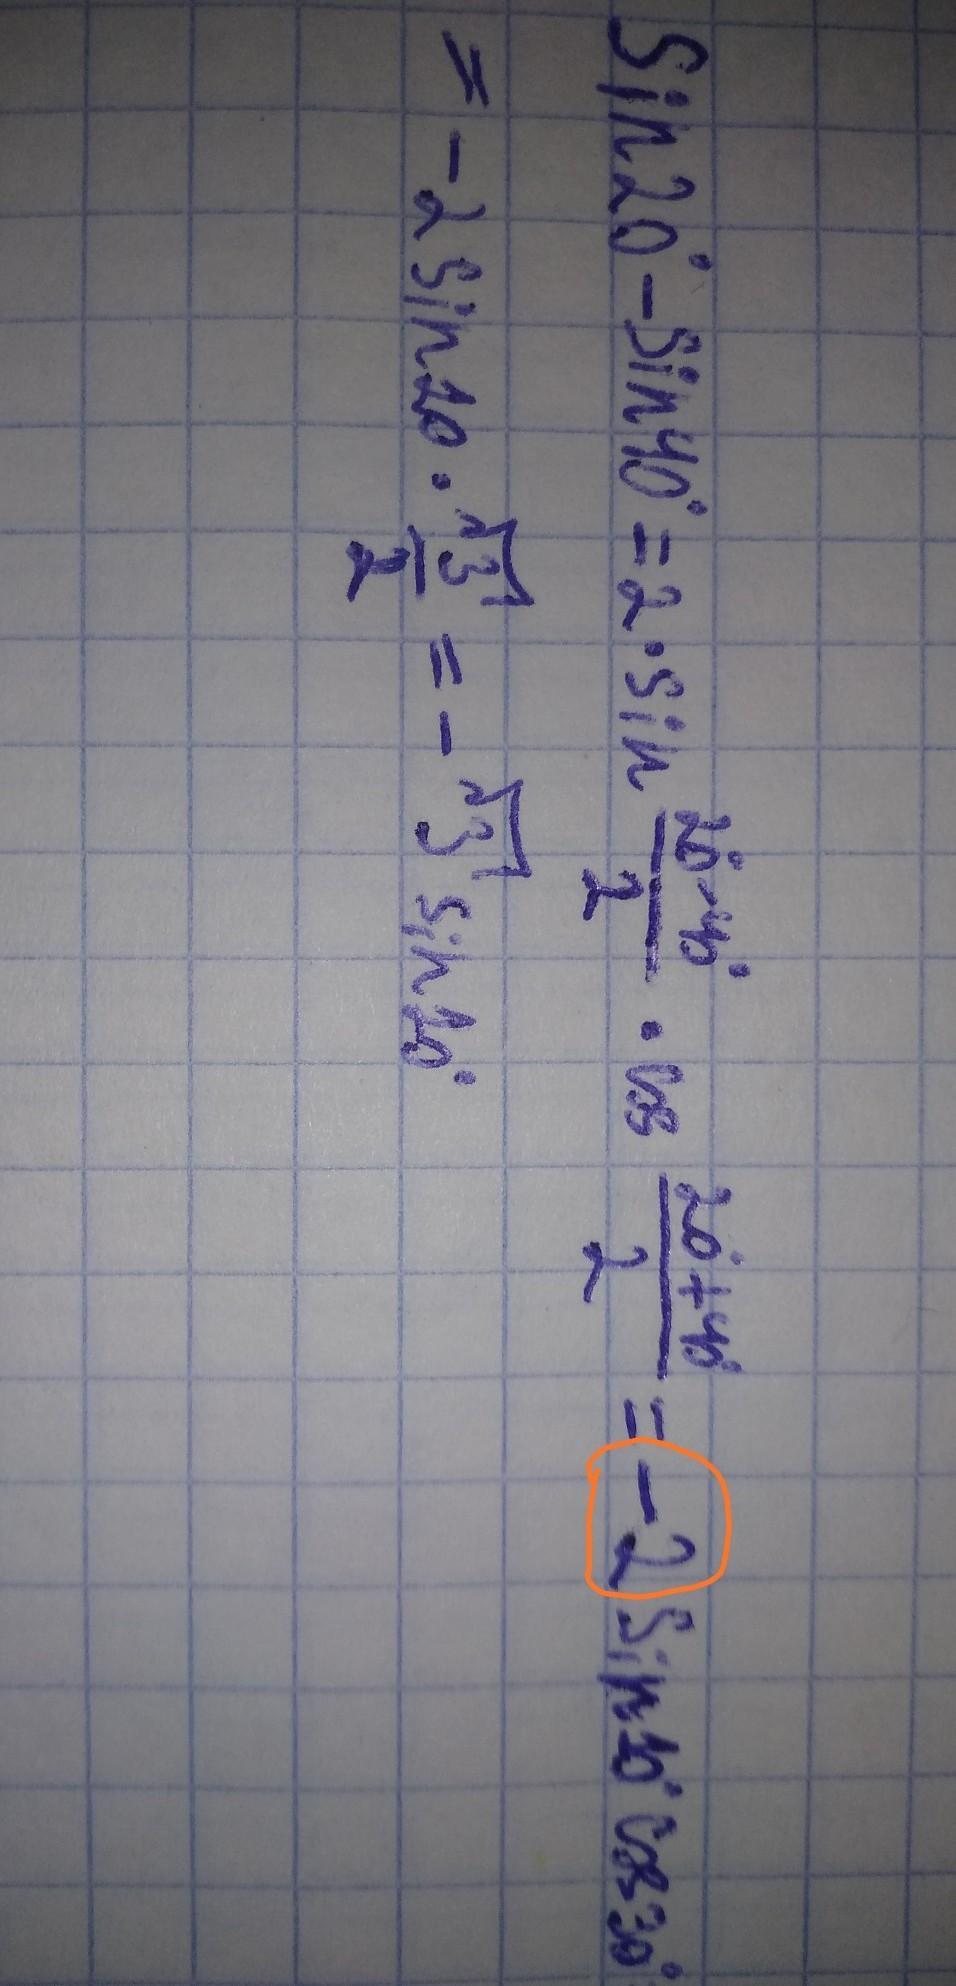 Sin20° - Sin40° = 2 · Sin (20° - 40°)/2 · Cos (20° + 40°)/2 = -2 Sin10° Cos30°
= -2 Sin10 · √3/2 = -√3 Sin10°